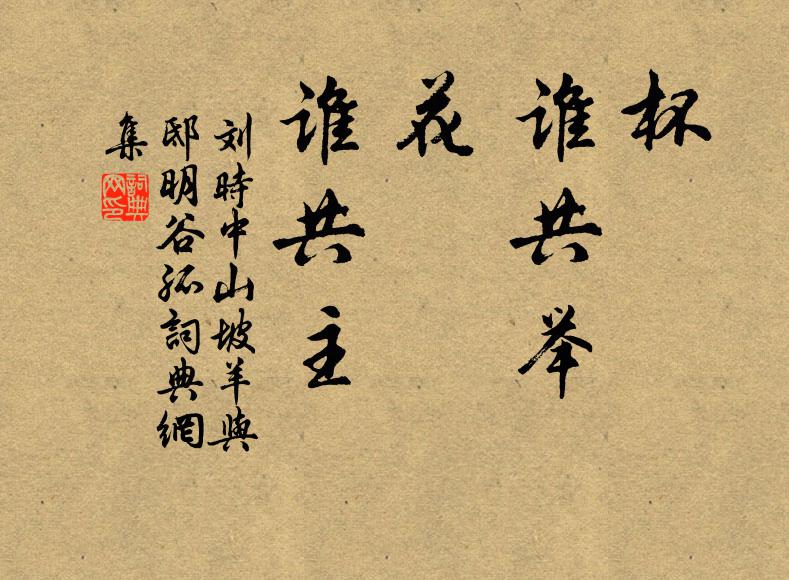 杯
谁共举
花
谁共主
刘時中山坡羊與
邸明谷孤詞典網
集
詞典網印